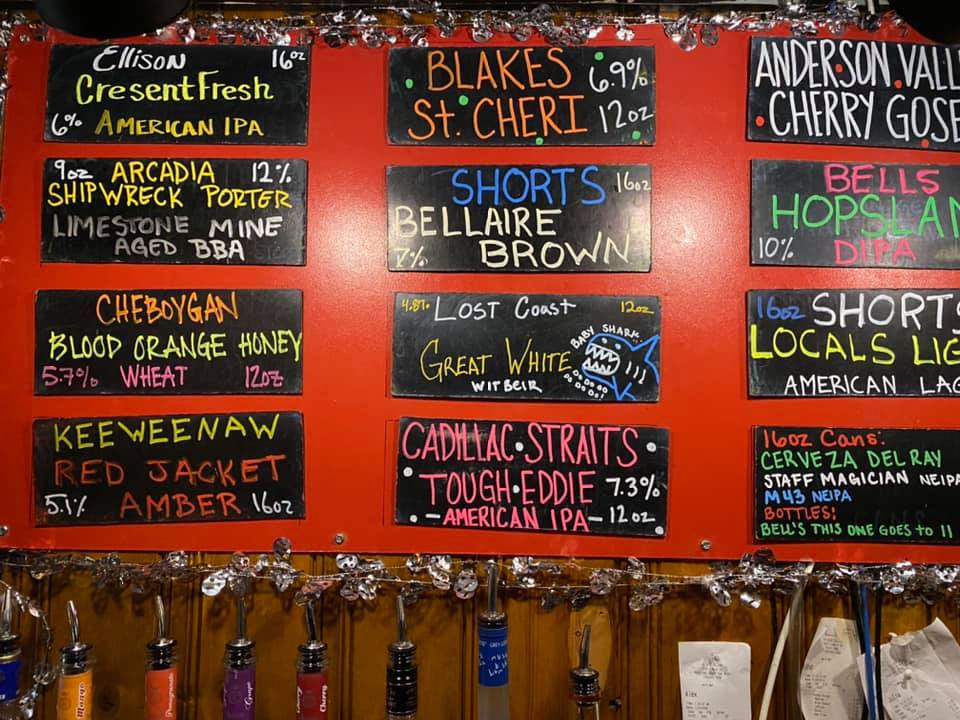 Ellison 16oz
CresentFresh
6% AMERICAN IPA
9oz ARCADIA 12%
SHIPWRECK PORTER
LIMESTONE MINE
AGED BBA
CHEBOYGAN
BLOOD ORANGE HONEY
5.7% WHEAT 12OZ
KEEWEENAW
RED JACKET
5.1% AMBER 16oz
BLAKES 6.9%
St. CHERI 12oz
SHORTS 16oz
BELLAIRE
7% BROWN
4.8% LOST COAST 12oz
GREAT WHITE
WITBEIR
BABY SHARK
DO DO DO DO
DO DO!
CADILLAC·STRAITS
TOUGH·EDDIE 7.3%
-AMERICAN IPA- 12oz
ANDERSON VALL
CHERRY GOSE
BELLS
HOPSLAN
10% DIPA
16oz SHORTS
LOCALS LIG
AMERICAN LAG
16oz Cans:
CERVEZA DEL RAY
STAFF MAGICIAN NEIPA
M43 NEIPA
BOTTLES:
BELL'S THIS ONE GOES TO 11
Mango
Grape
Cherry
Alex